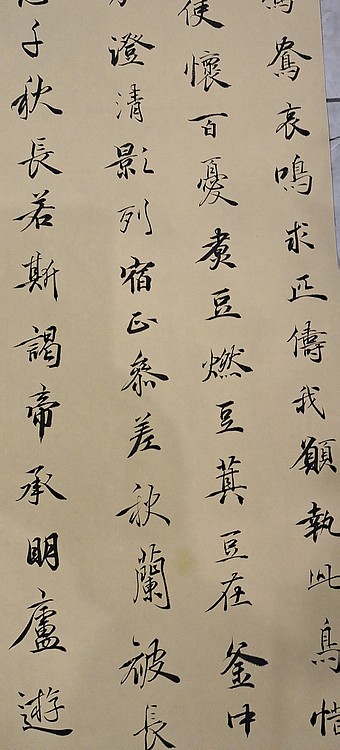 鴦哀鳴求匹儔我願執此鳥惜
使懷百憂煮豆燃豆萁豆在釜中
澄清影列宿正參差秋蘭被長
千秋長若斯謁帝承明廬逝